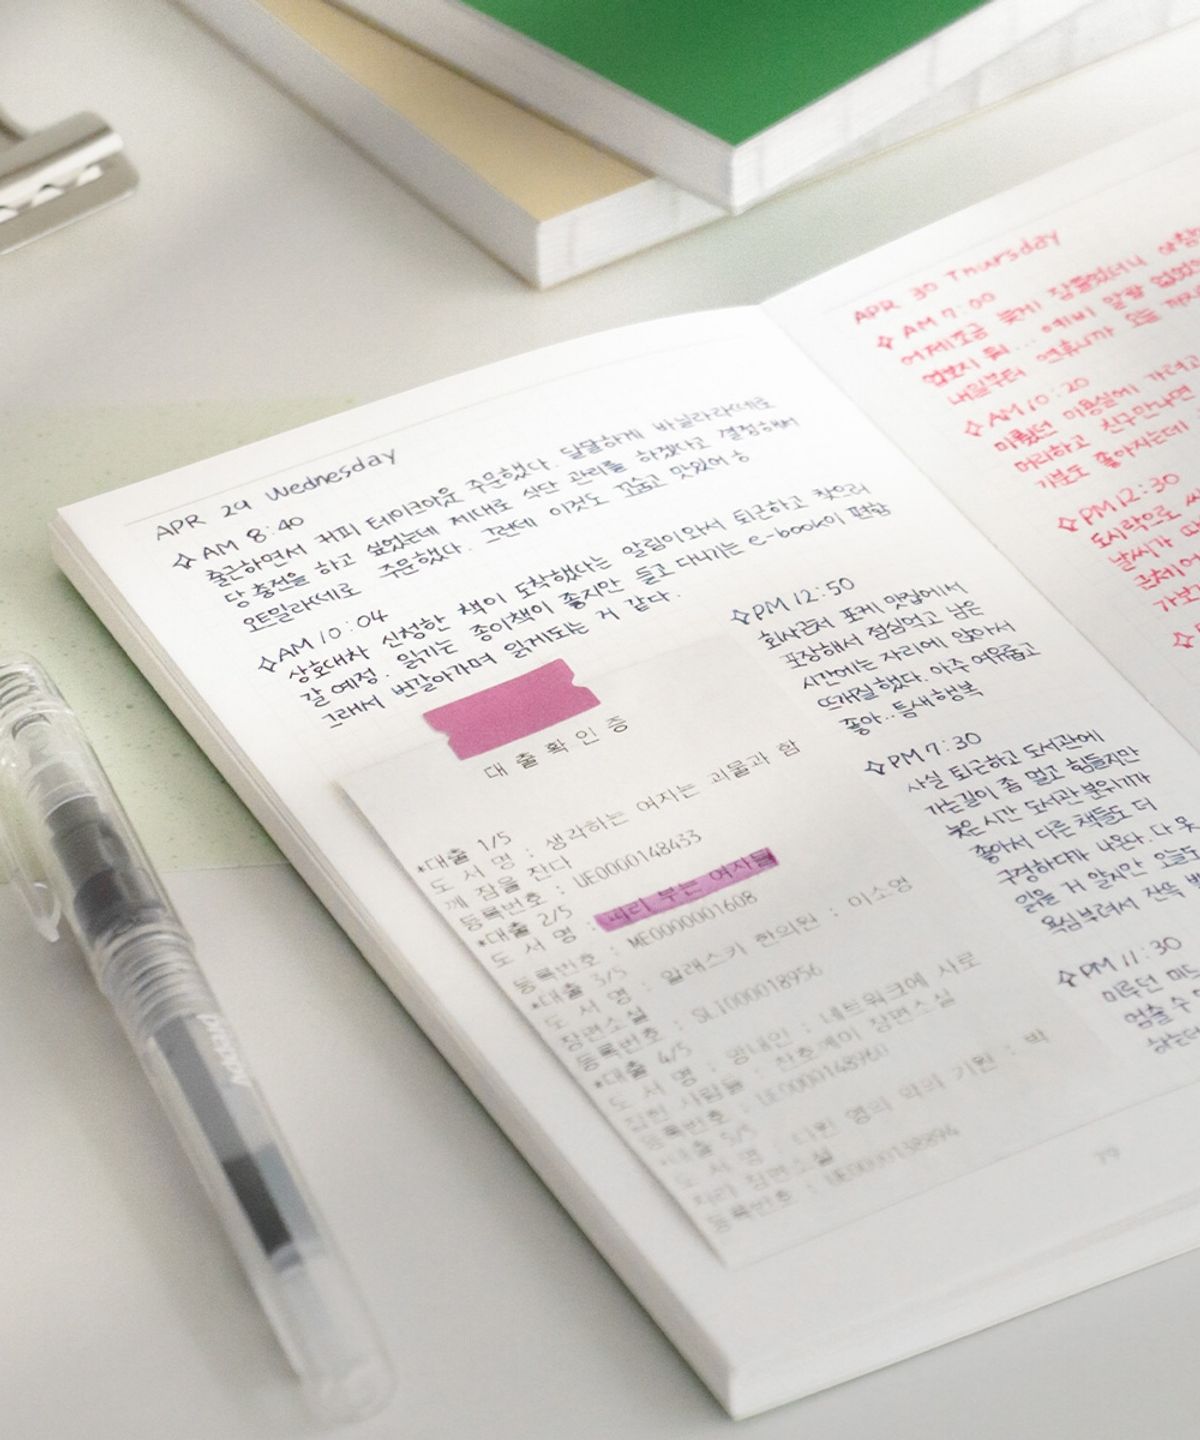 APR 29 Wednesday
AM 8:40
출근하면서 커피 테이크아웃 주문했다. 달달하게 바닐라라떼로
당충전을 하고 싶었는데 제대로 식단 관리를 하겠다고 결정해서
오트밀라떼로 주문했다. 그런데 이것도 꼬숩고 맛있어 ㅎ
AM 10:04
상호대차 신청한 책이 도착했다는 알림이와서 퇴근하고 찾으러
갈 예정. 읽기는 종이책이 좋지만 들고 다니기는 e-book이 편함
그래서 번갈아가며 읽게되는 거 같다.
대출확인증
*대출 1/5
도 서 명 : 생각하는 여자는 괴물과 함
께 잠을 잔다
등록번호 : UE0000148433
*대출 2/5
도 서 명 : 피리 부는 여자들
등록번호 : ME0000001608
*대출 3/5
도 서 명 : 알래스카 한의원 : 이소영
장편소설
등록번호 : SLI000018956
*대출 4/5
도 서 명 : 망내인 : 네트워크에 사로
잡힌 사람들 : 찬호께이 장편소설
등록번호 : UE0000148960
*대출 5/5
도 서 명 : 다윈 영의 악의 기원 : 박
지리 장편소설
등록번호 : UE0000138894
PM 12:50
회사근처 포케 맛집에서
포장해서 점심먹고 남은
시간에는 자리에 앉아서
뜨개질했다. 아주 여유롭고
좋아.. 틈새행복
PM 7:30
사실 퇴근하고 도서관에
가는길이 좀 멀고 힘들지만
늦은시간 도서관 분위기가
좋아서 다른 책들도 더
구경하다가 나온다. 다 못
읽을 거 알지만 오늘도
욕심부려서 잔뜩
PM 11:30
미루던 미드
멈출 수
하는데
79
APR 30 Thursday
AM 7:00
어제 조금 늦게 잠들었더니
예비 알람
내일부터 연휴니까 오늘
AM 10:20
미뤘던 미용실에 가려고
머리하고 친구만나면
기분도 좋아지는데
PM 12:30
도시락으로
날씨가
근처에
가보